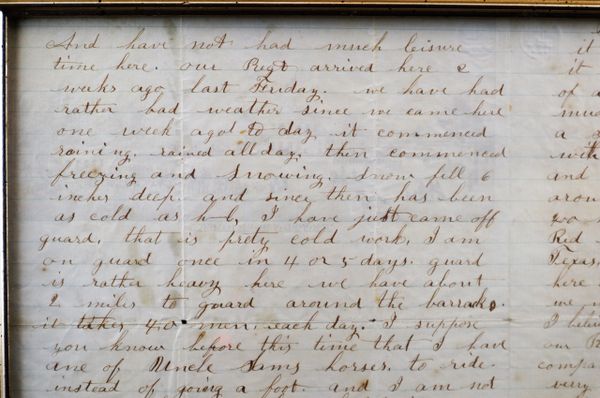 And have not had much leisure
time here. our Regt arrived here 2
weeks ago last Friday. we have had
rather bad weather since we came here
one week ago to day it commenced
raining. rained all day. then commenced
freezing and snowing. snow fell 6
inches deep. and since then has been
as cold as h-l, I have just came off
guard, that is prety cold work, I am
on guard once in 4 or 5 days. guard
is rather heavy here we have about
2 miles to guard around the barraks.
it takes 40 men, each day. I suppose
you know before this time that I have
one of Uncle Sams horses. to ride.
instead of going a foot. and I am not
it
it
of a
muc
a s
with
and
arou
20
Red
Texas,
here
we
I belie
our R
compa
very